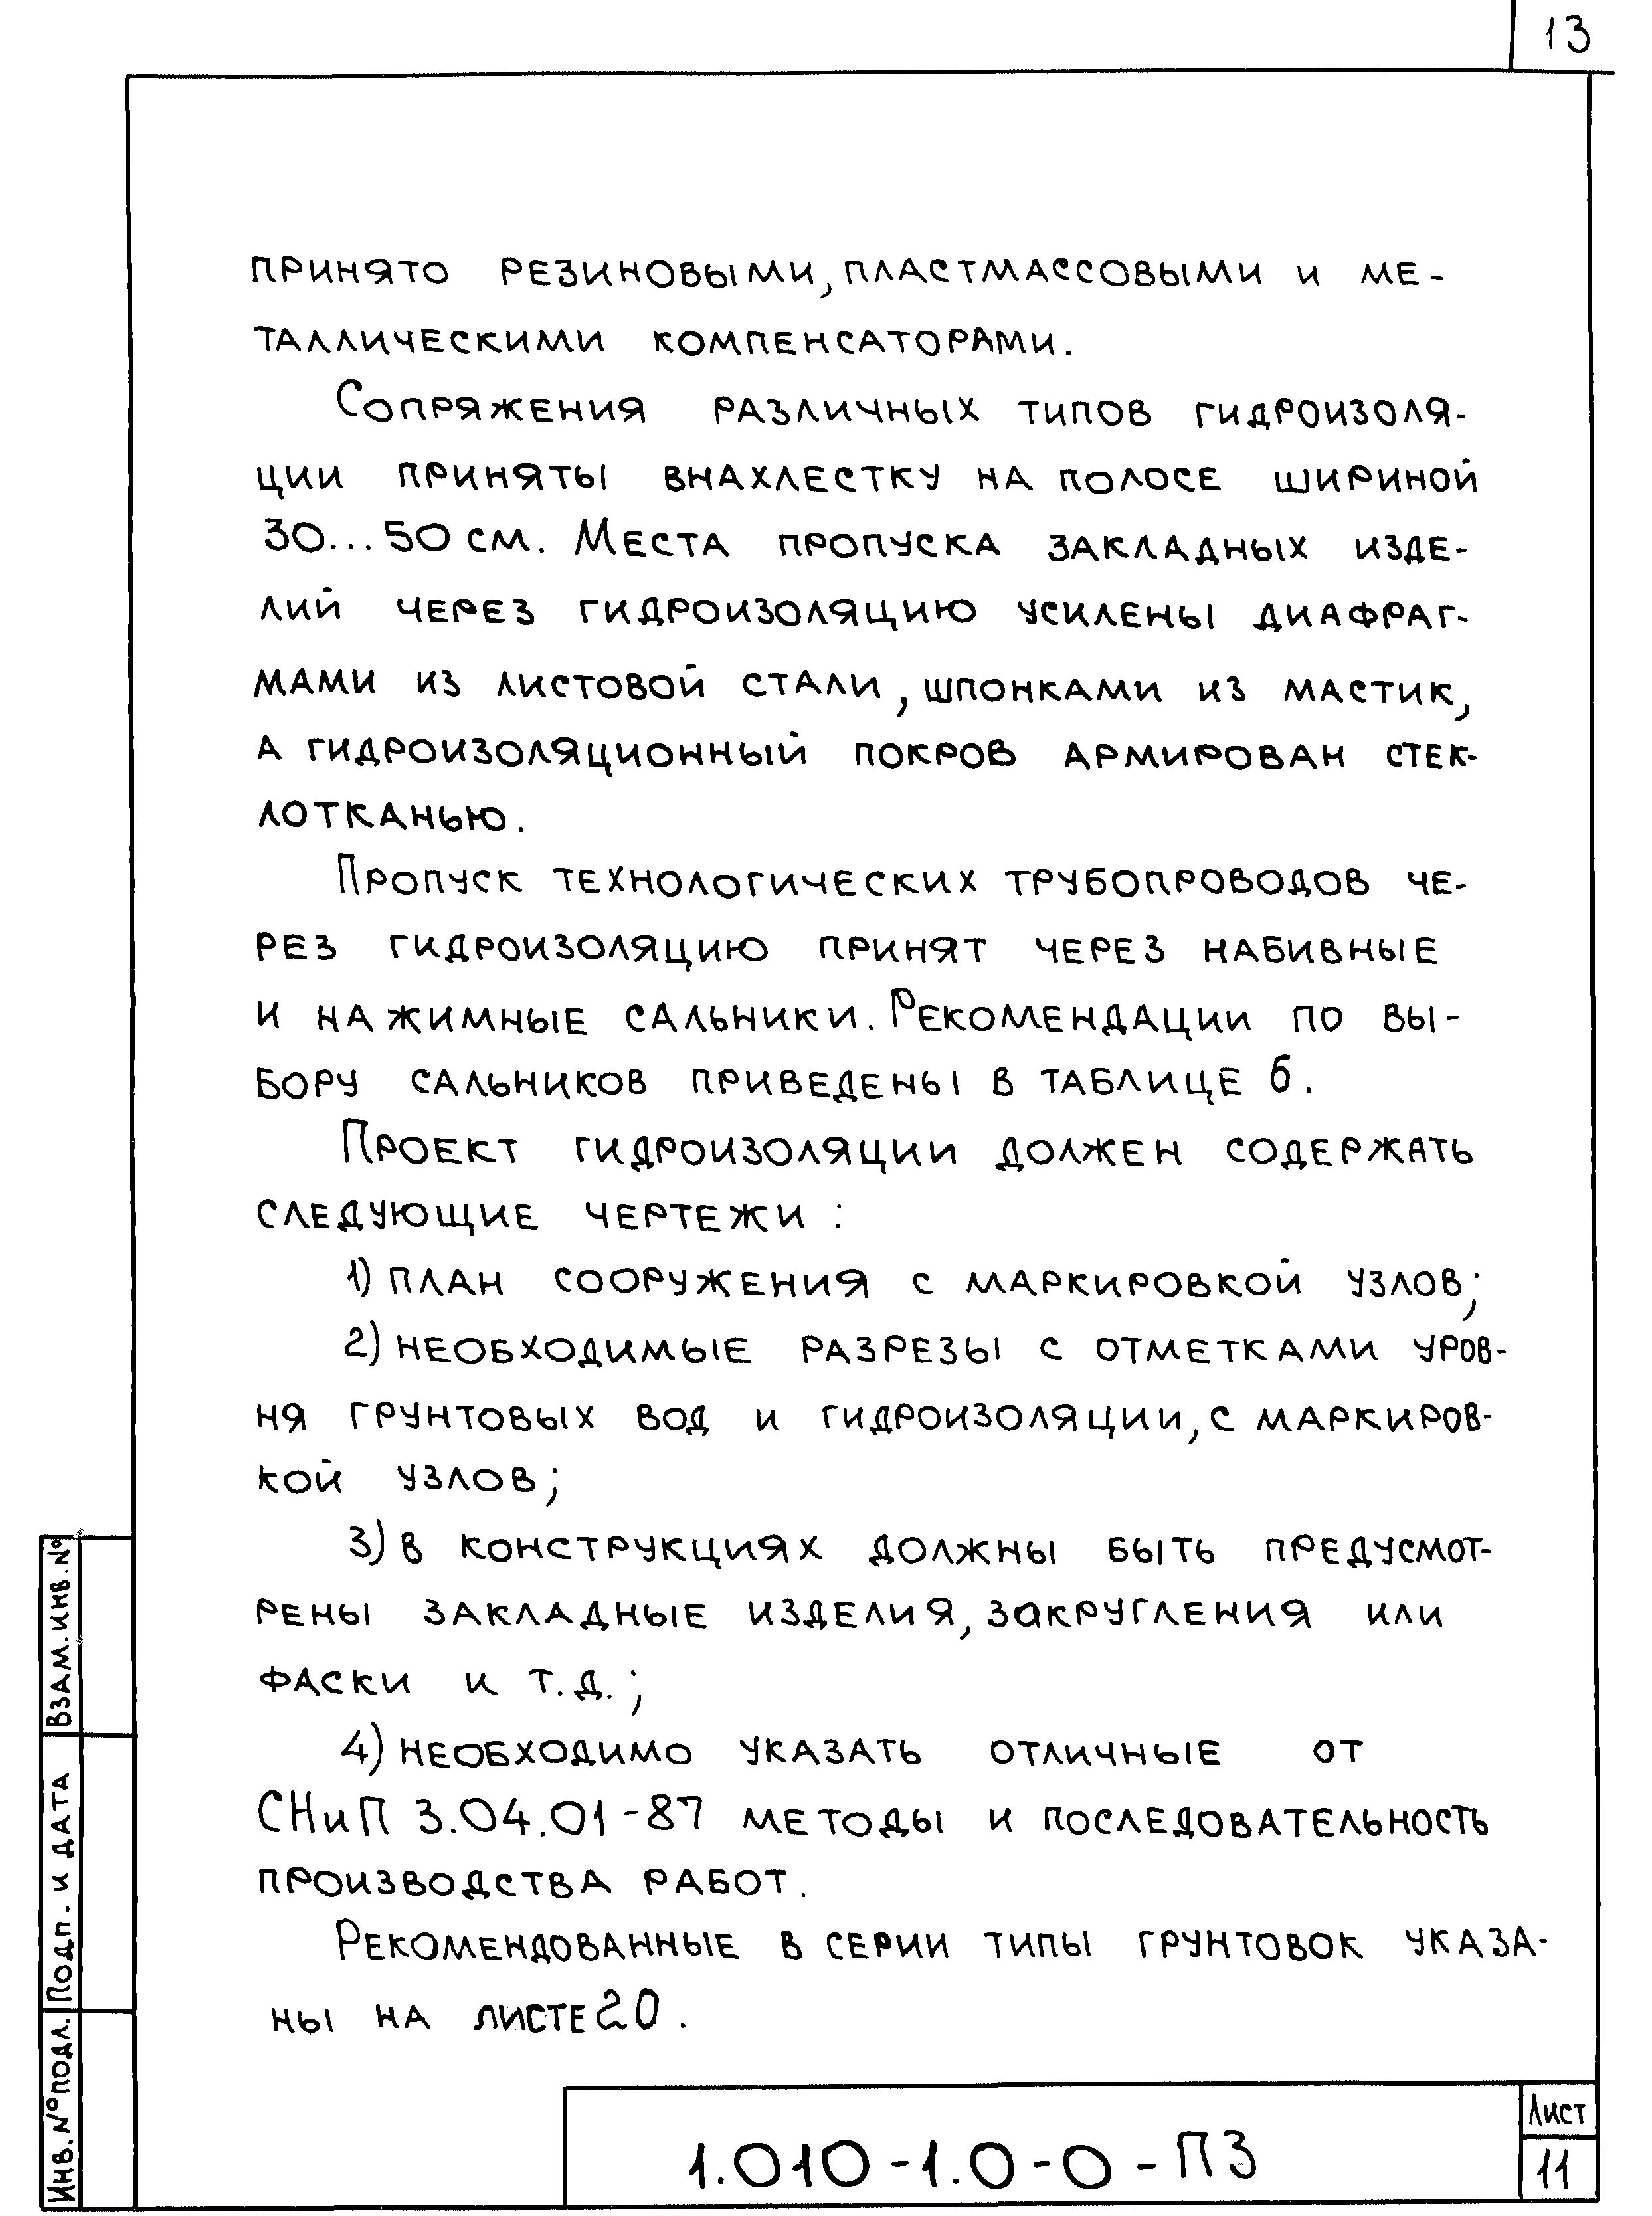 13
принято резиновыми, пластмассовыми и ме-
таллическими компенсаторами.
Сопряжения различных типов гидроизоля-
ции приняты внахлестку на полосе шириной
30...50 см. Места пропуска закладных изде-
лий через гидроизоляцию усилены диафраг-
мами из листовой стали, шпонками из мастик,
а гидроизоляционный покров армирован стек-
лотканью.
Пропуск технологических трубопроводов че-
рез гидроизоляцию принят через набивные
и нажимные сальники. Рекомендации по вы-
бору сальников приведены в таблице 6.
Проект гидроизоляции должен содержать
следующие чертежи:
1) план сооружения с маркировкой узлов;
2) необходимые разрезы с отметками уров-
ня грунтовых вод и гидроизоляции, с маркиров-
кой узлов;
3) в конструкциях должны быть предусмот-
рены закладные изделия, закругления или
фаски и т.д.;
4) необходимо указать отличные от
СНиП 3.04.01-87 методы и последовательность
производства работ.
Рекомендованные в серии типы грунтовок указа-
ны на листе 20.
Взам. инв. №
Подп. и дата
Инв. № подл.
1.010-1.0-0-ПЗ
Лист
11